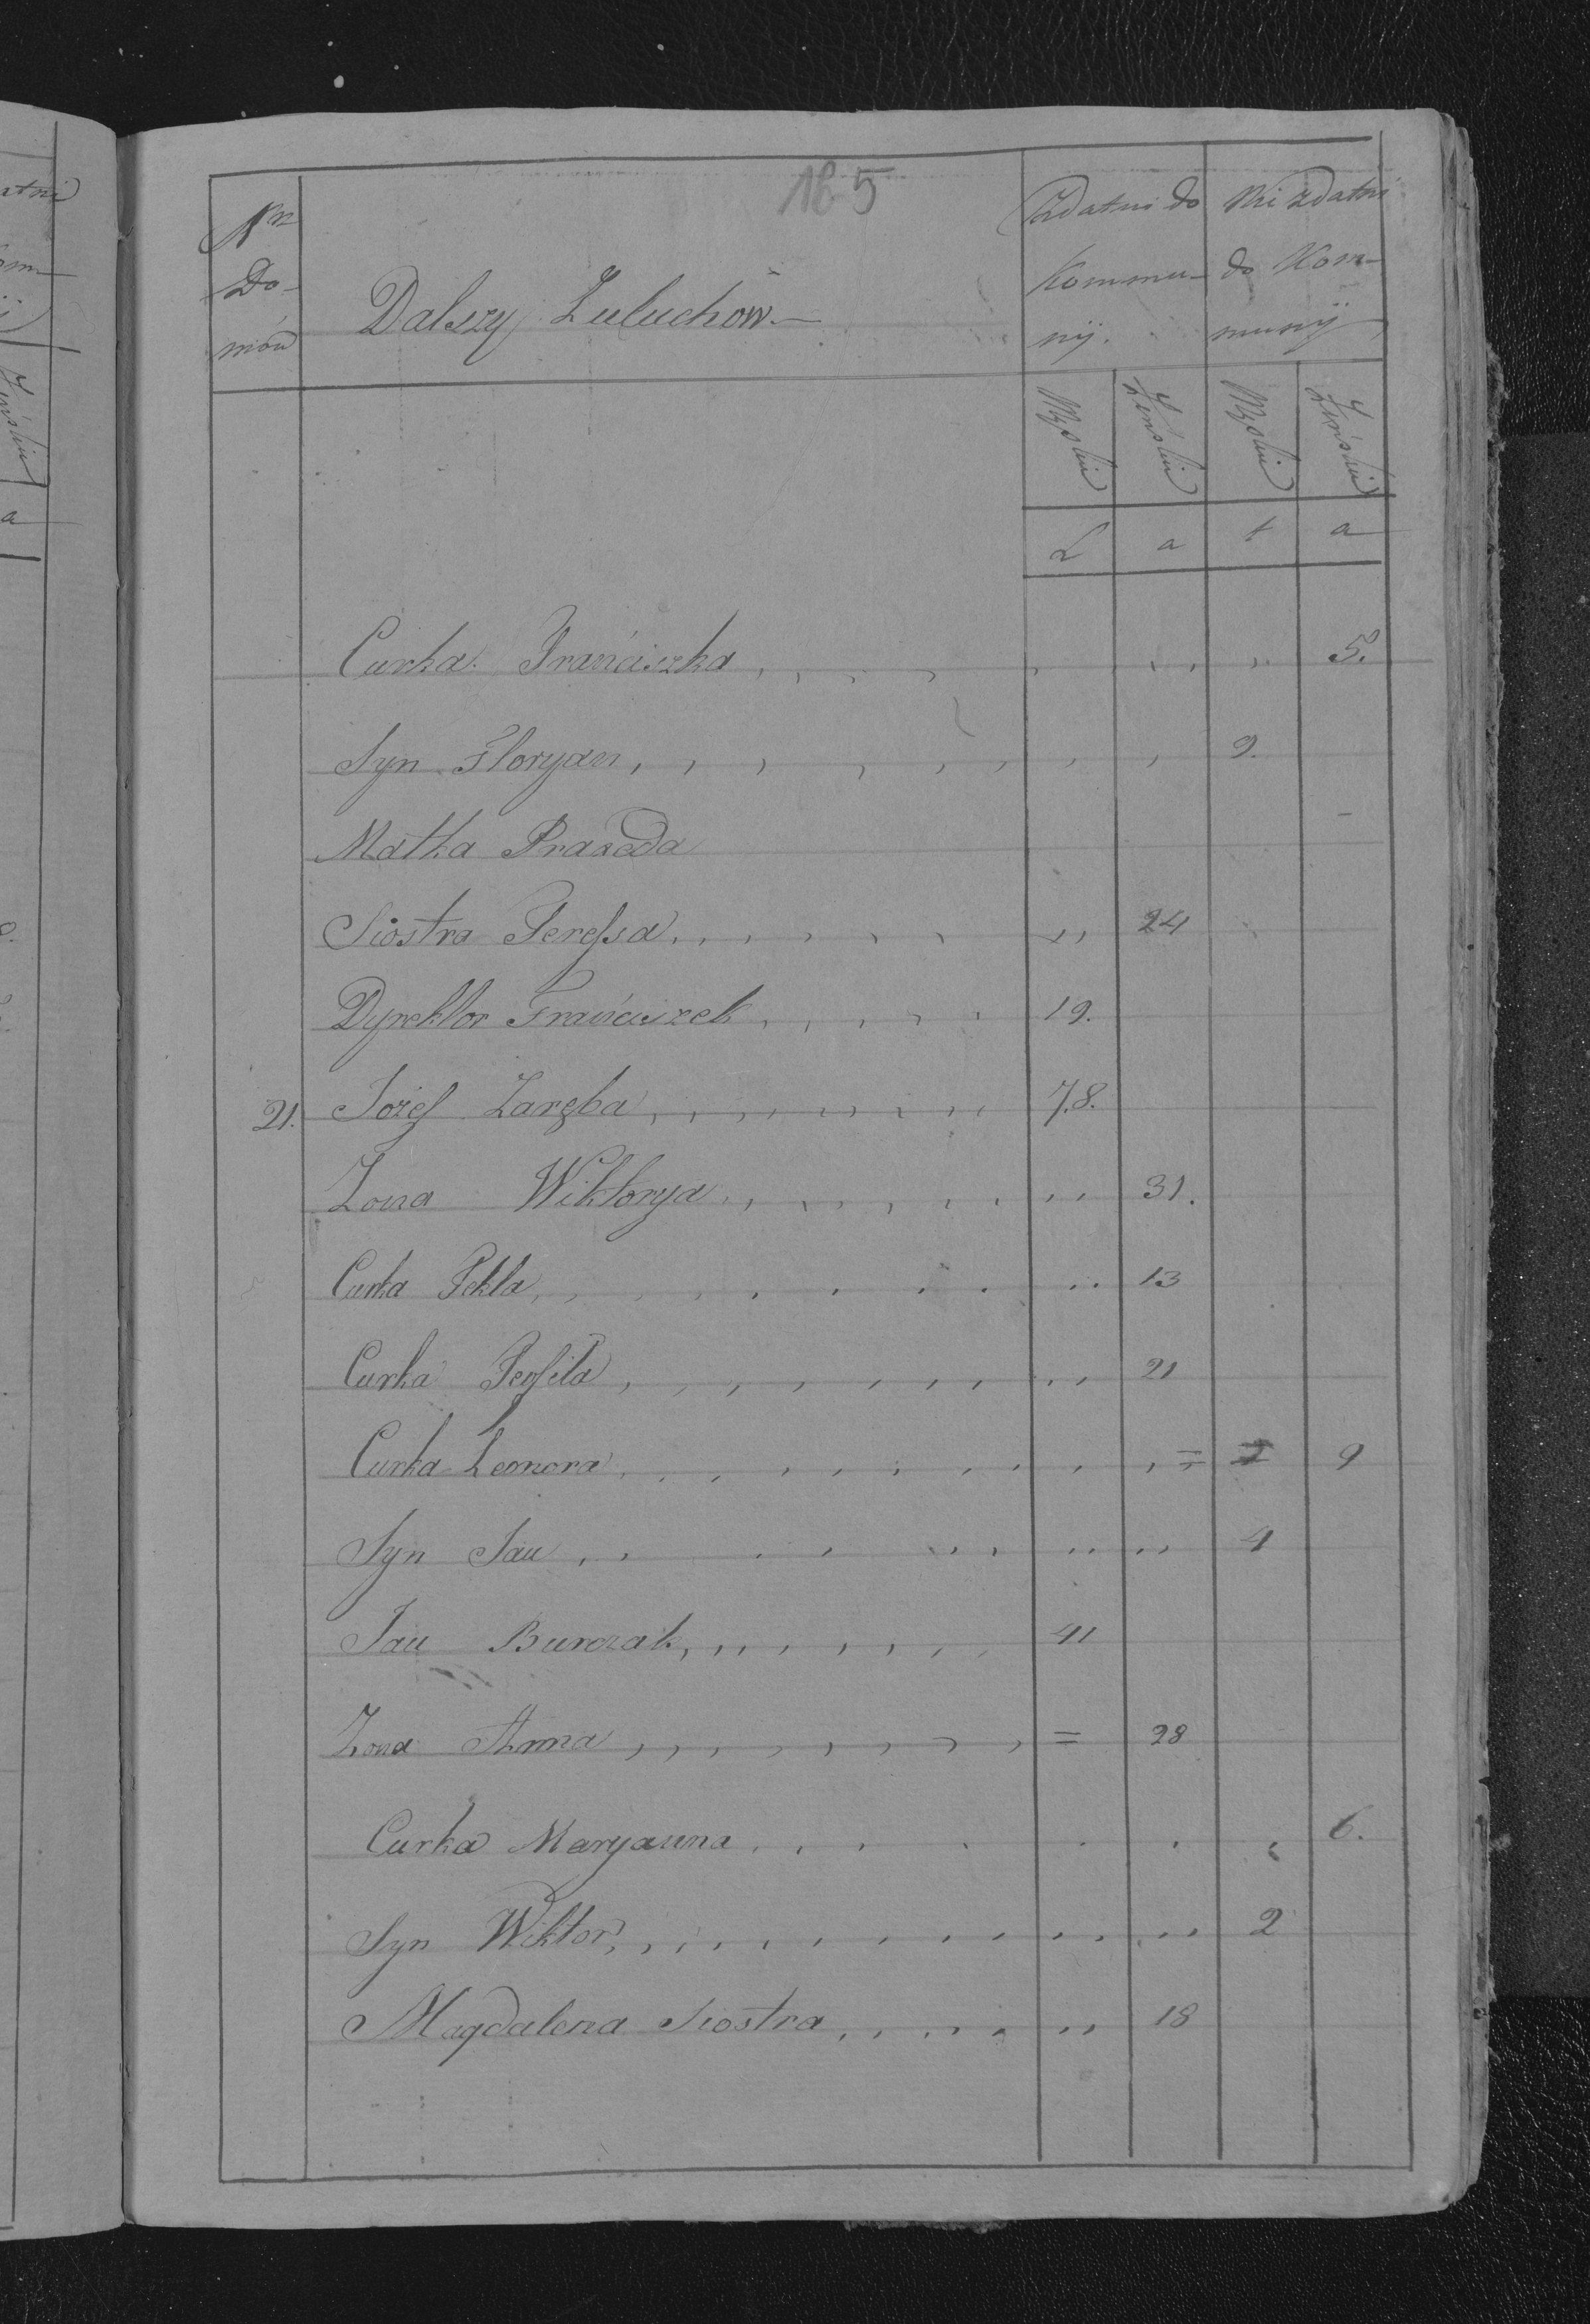 185
Nro Do- mów
Dalszy Zuluchów
Zdatni do Kommu- nij.
Nie zdatni do Kom- munij
Męskie Żeńskie Męskie Żeńskie
L a t a
Curka Franciszka 5.
Syn Floryan 9.
Matka Praxeda
Siostra Teressa 24
Dyrektor Franciszek 19.
21. Jozef Zaręba 78.
Zona Wiktorya 31.
Curka Tekla 13
Curka Teofila 21
Curka Leonora = 9
Syn Jan 4
Jan Burczak 41
Zona Anna = 28
Curka Maryanna 6.
Syn Wiktor 2
Magdalena Siostra 18